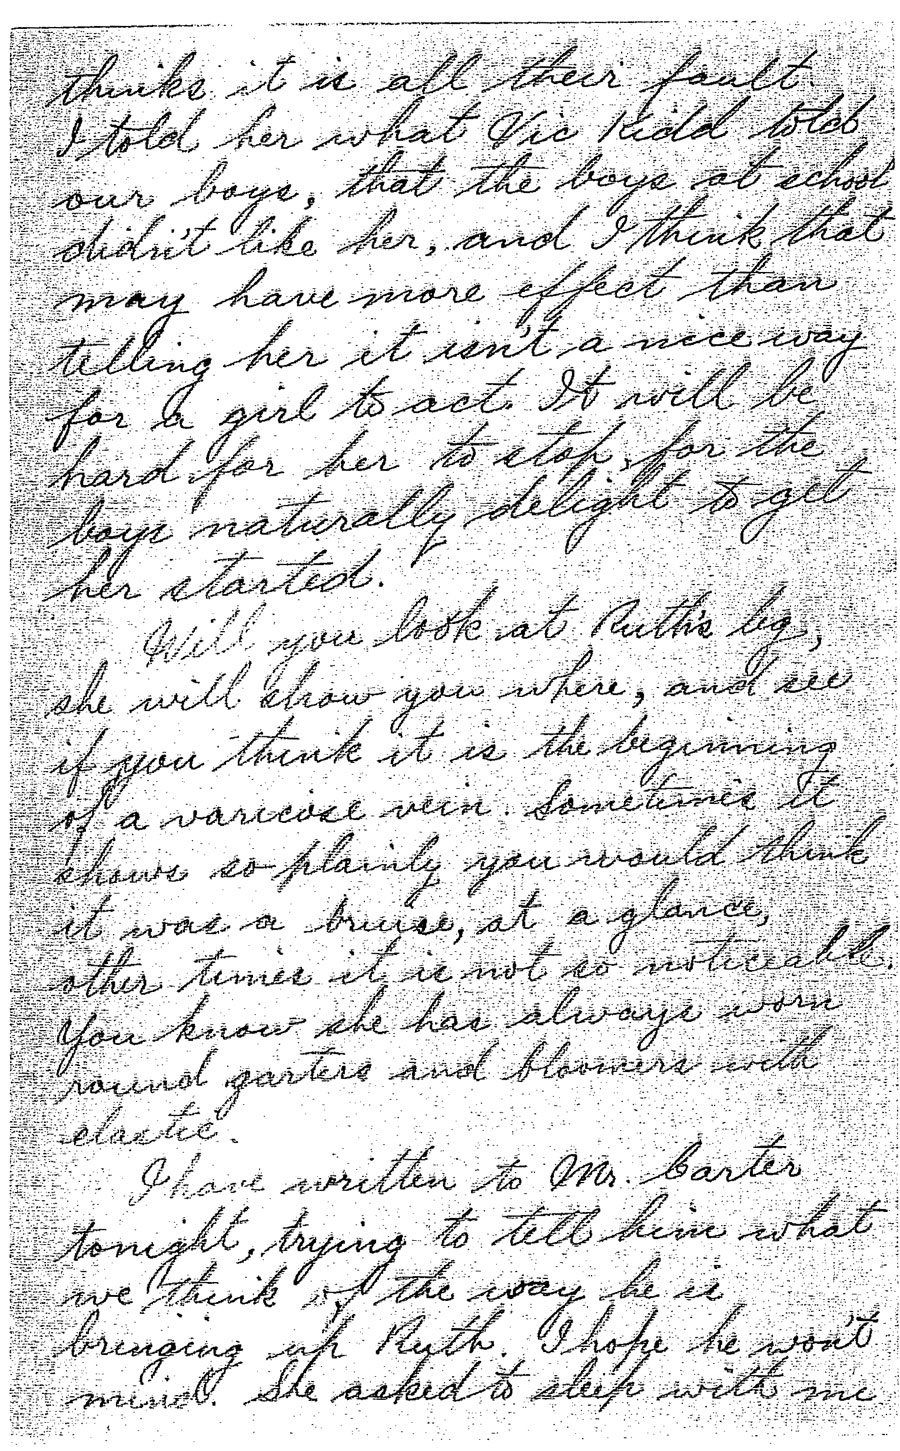 thinks it is all their fault.
I told her what Vic Kidd told
our boys, that the boys at school
didn't like her, and I think that
may have more effect than
telling her it isn't a nice way
for a girl to act. It will be
hard for her to stop, for the
boys naturally delight to get
her started.
Will you look at Ruth's leg,
she will show you where, and see
if you think it is the beginning
of a varicose vein. Sometimes it
shows so plainly you would think
it was a bruise, at a glance,
other times it is not so noticeable.
You know she has always worn
round garters and bloomers with
elastic.
I have written to Mr. Carter
tonight, trying to tell him what
we think of the way he is
bringing up Ruth. I hope he won't
mind. She asked to sleep with me